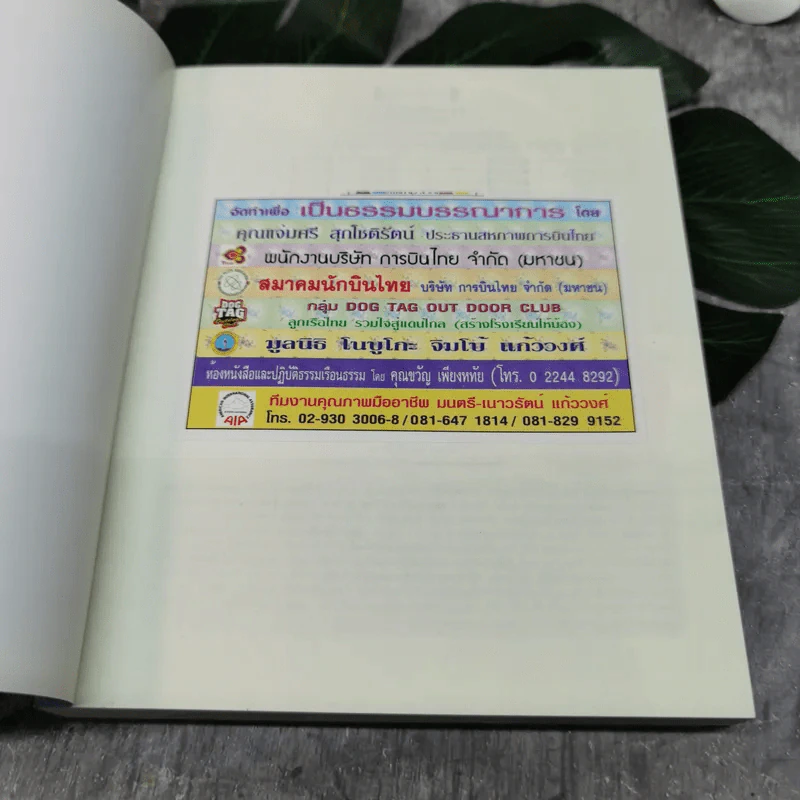 จัดทำเพื่อ เป็นธรรมบรรณาการ โดย
คุณแจ่มศรี สุกโชติรัตน์ ประธานสหภาพการบินไทย
พนักงานบริษัท การบินไทย จำกัด (มหาชน)
สมาคมนักบินไทย บริษัท การบินไทย จำกัด (มหาชน)
กลุ่ม DOG TAG OUT DOOR CLUB
DOG TAG
ลูกเรือไทย รวมใจสู่แดนไกล (สร้างโรงเรียนให้น้อง)
มูลนิธิ โนบูโกะ จิมโบ้ แก้ววงศ์
ห้องหนังสือและปฏิบัติธรรมเรือนธรรม โดย คุณขวัญ เพียงหทัย (โทร. 0 2244 8292)
ทีมงานคุณภาพมืออาชีพ มนตรี-เนาวรัตน์ แก้ววงศ์
AIP
โทร. 02-930 3006-8 / 081-647 1814 / 081-829 9152